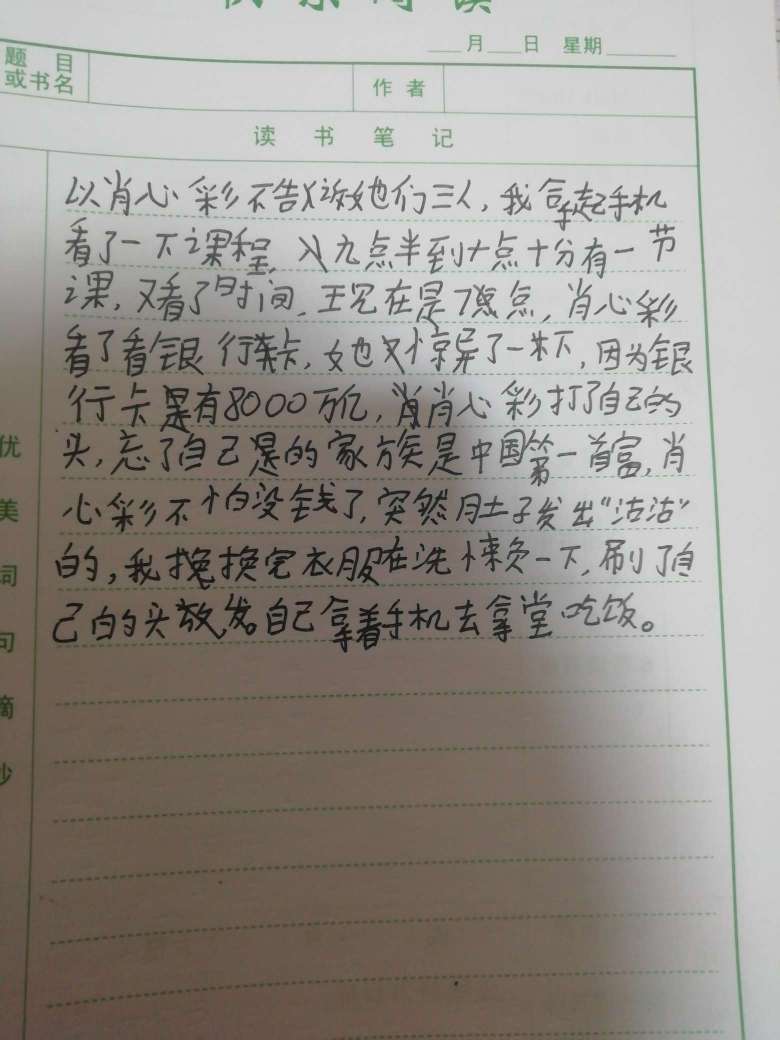 月 日 星期
题目
或书名
作者
读书笔记
以肖心彩不告诉她们三人,我拿起手机
看了一下课程,从九点半到十点十分有一节
课,又看了时间,现在是7点,肖心彩
看了看银行卡,她又惊异了一下,因为银
行卡里有8000万亿,肖肖心彩打了自己的
头,忘了自己是的家族是中国第一首富,肖
心彩不怕没钱了,突然肚子发出“沽沽”
的,我换完衣服在洗漱一下,刷了自
己的头发。自己拿着手机去堂吃饭。
优
美
词
句
摘
抄